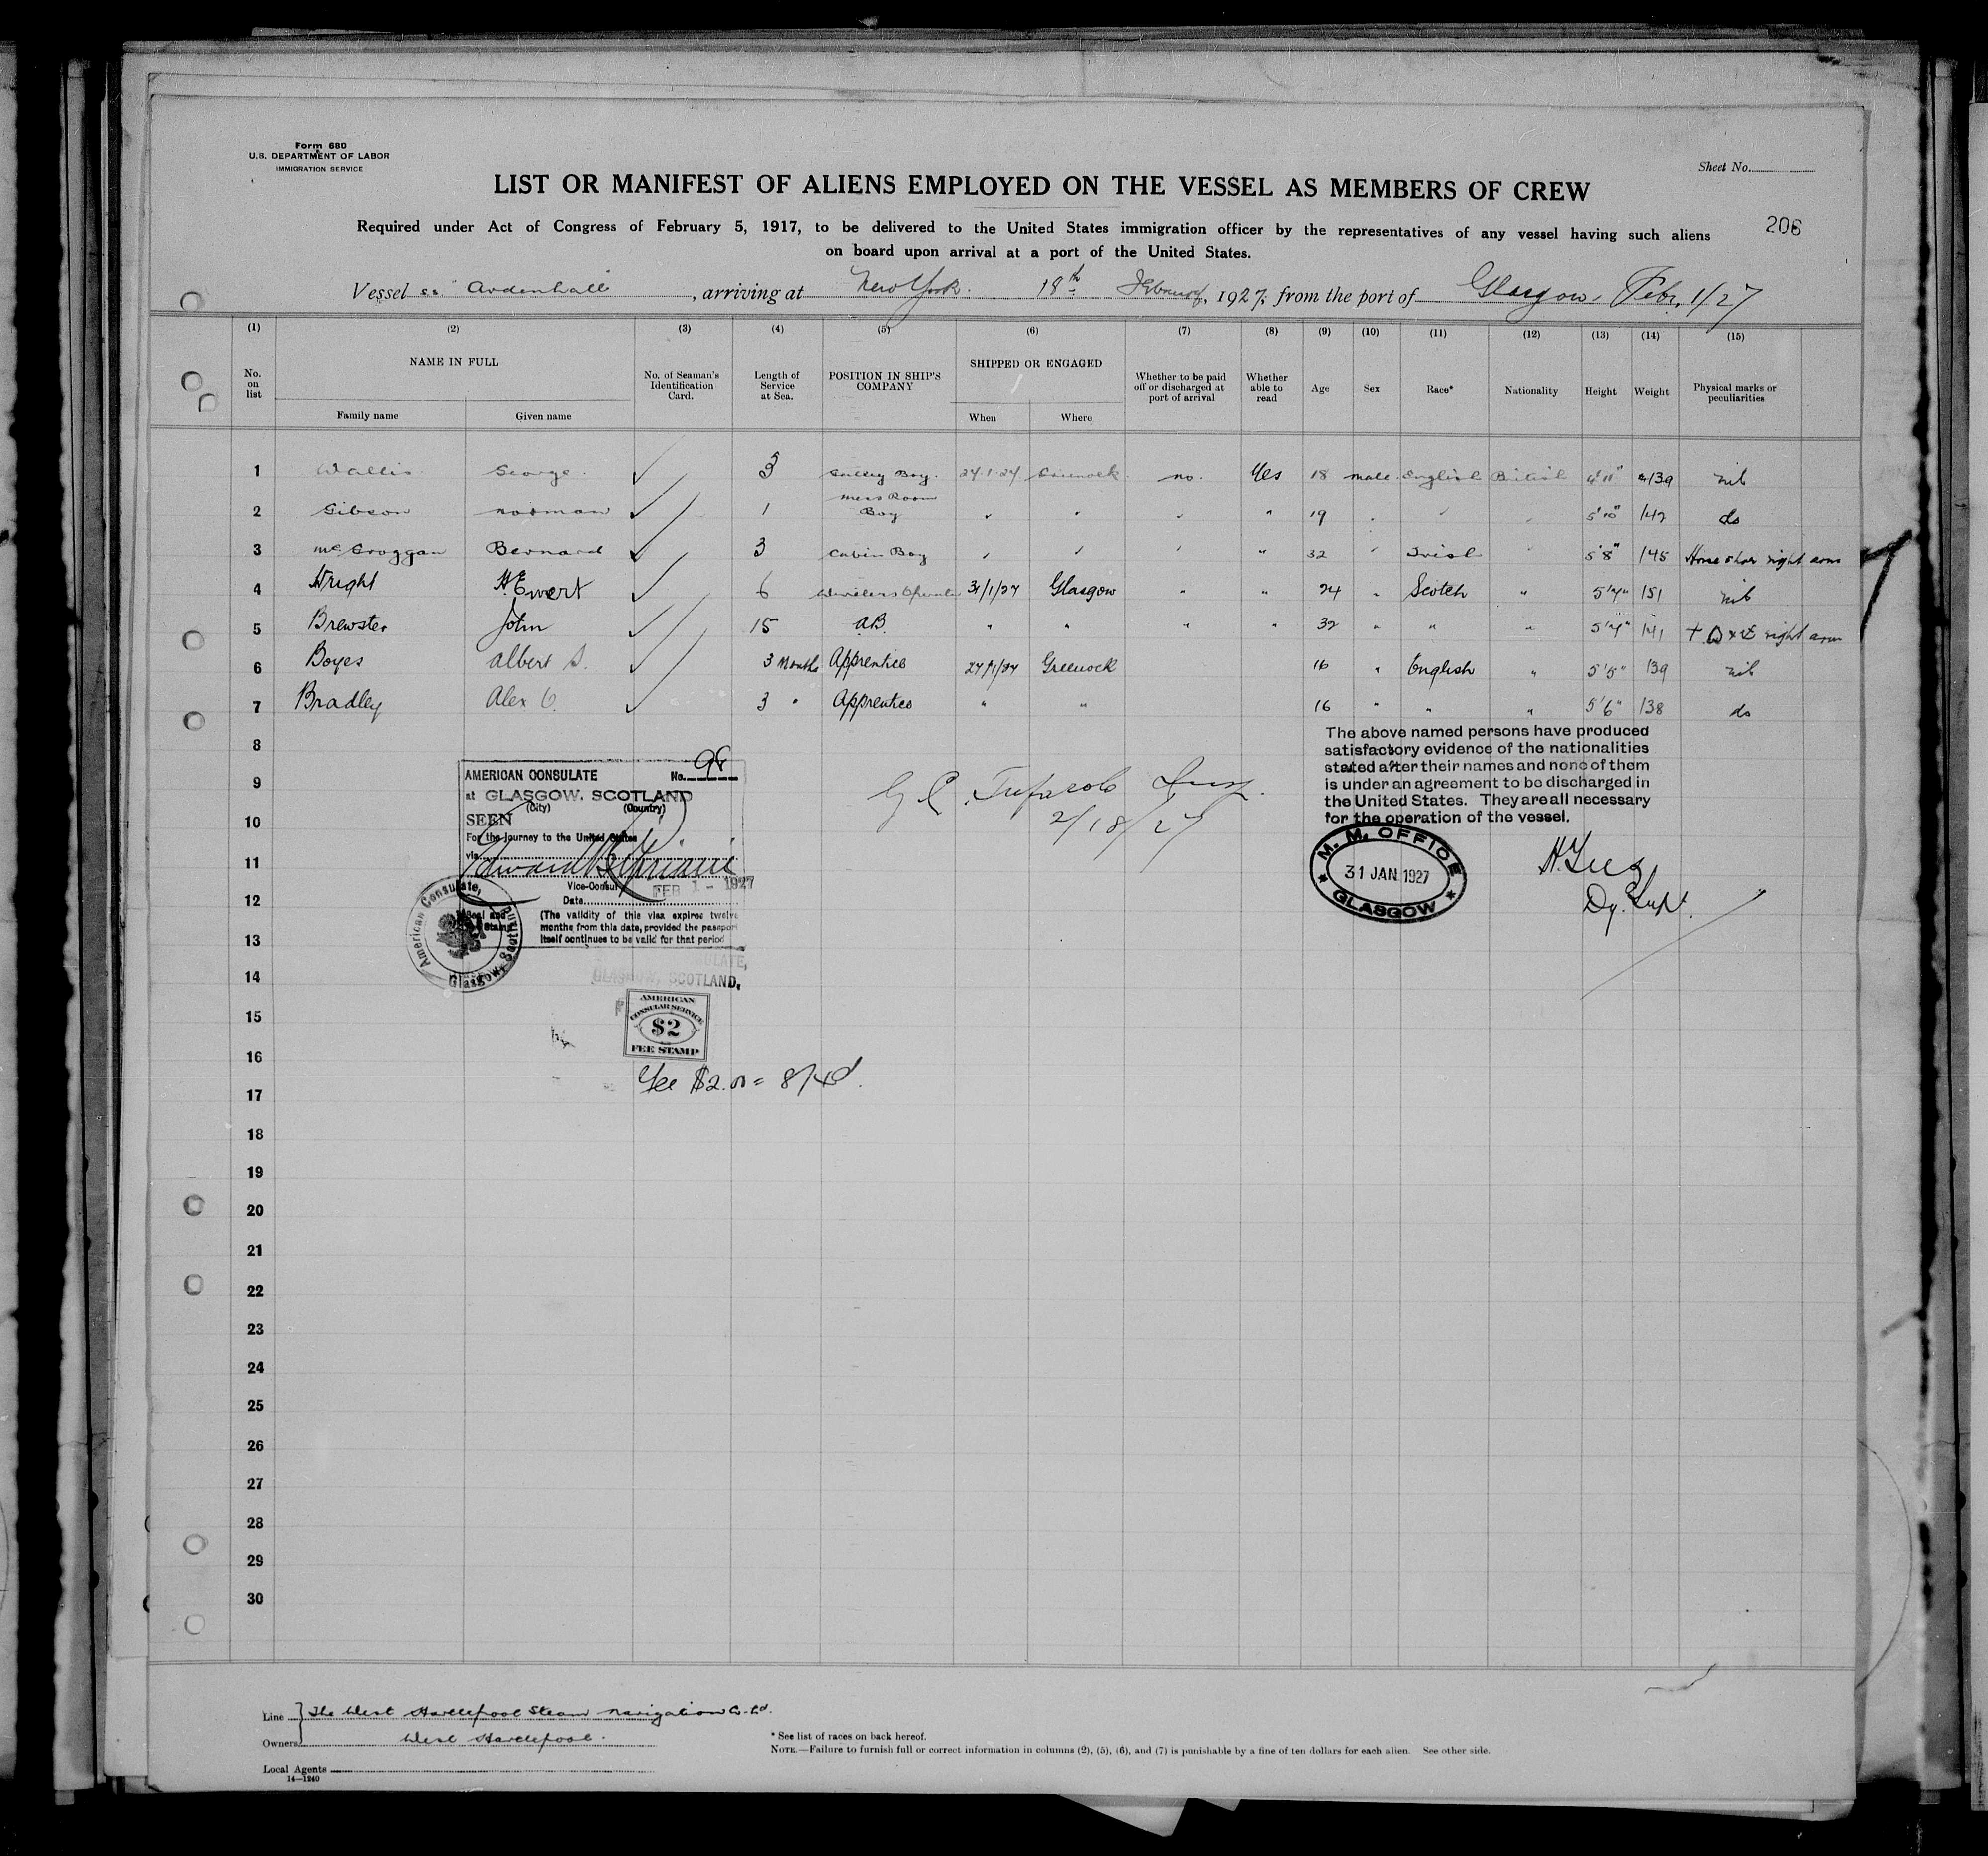 Form 680
U.S. DEPARTMENT OF LABOR
IMMIGRATION SERVICE
Sheet No.
LIST OR MANIFEST OF ALIENS EMPLOYED ON THE VESSEL AS MEMBERS OF CREW
206
Required under Act of Congress of February 5, 1917, to be delivered to the United States immigration officer by the representatives of any vessel having such aliens
on board upon arrival at a port of the United States.
Vessel ss. Ardenhall, arriving at New York. 18th February, 1927, from the port of Glasgow, Febr. 1/27
(1) (2) (3) (4) (5) (6) (7) (8) (9) (10) (11) (12) (13) (14) (15)
No. on list
NAME IN FULL
Family name Given name
No. of Seaman's Identification Card.
Length of Service at Sea.
POSITION IN SHIP'S COMPANY
SHIPPED OR ENGAGED
When Where
Whether to be paid off or discharged at port of arrival
Whether able to read
Age Sex Race* Nationality Height Weight
Physical marks or peculiarities
1 Wallis George. ✓ 3 Galley Boy. 24.1.27 Greenock. no. Yes 18 male. English British 4'11" 139 nil
2 Gibson Norman ✓ 1 Mess Room Boy " " " " 19 " " " 5'10" 142 do
3 McGroggan Bernard ✓ 3 Cabin Boy " " " " 32 " Irish " 5'8" 145 Horse shoe right arm
4 Wright H. Ewert ✓ 6 Wireless Operator 31/1/27 Glasgow " " 24 " Scotch " 151 nil
5 Brewster John ✓ 15 A.B. " " " " 32 " " " 141 right arm
6 Boyes Albert S. ✓ 3 Months Apprentice 24/1/27 Greenock 16 " English " 5'5" 139 nil
7 Bradley Alex ✓ 3 " Apprentice " " 16 " " " 5'6" 138 do
8
9
10
11
12
13
14
15
16
17
18
19
20
21
22
23
24
25
26
27
28
29
30
The above named persons have produced
satisfactory evidence of the nationalities
stated after their names and none of them
is under an agreement to be discharged in
the United States. They are all necessary
for the operation of the vessel.
M. M. OFFICE
31 JAN 1927
GLASGOW
Dy. Supt.
2/18/27
AMERICAN CONSULATE No. 98
at GLASGOW, SCOTLAND
(City) (Country)
SEEN
For the journey to the United States
via
Vice-Consul
FEB 1 - 1927
Date
(The validity of this visa expires twelve
months from this date, provided the passport
itself continues to be valid for that period
Seal and Stamp
American Consulate,
Glasgow, Scotland
GLASGOW, SCOTLAND,
AMERICAN
CONSULAR SERVICE
$2
FEE STAMP
Fee $2.00 = 8/4d.
Line The West Hartlepool Steam Navigation Co. Ld.
Owners West Hartlepool.
Local Agents
14—1240
* See list of races on back hereof.
NOTE.—Failure to furnish full or correct information in columns (2), (5), (6), and (7) is punishable by a fine of ten dollars for each alien. See other side.